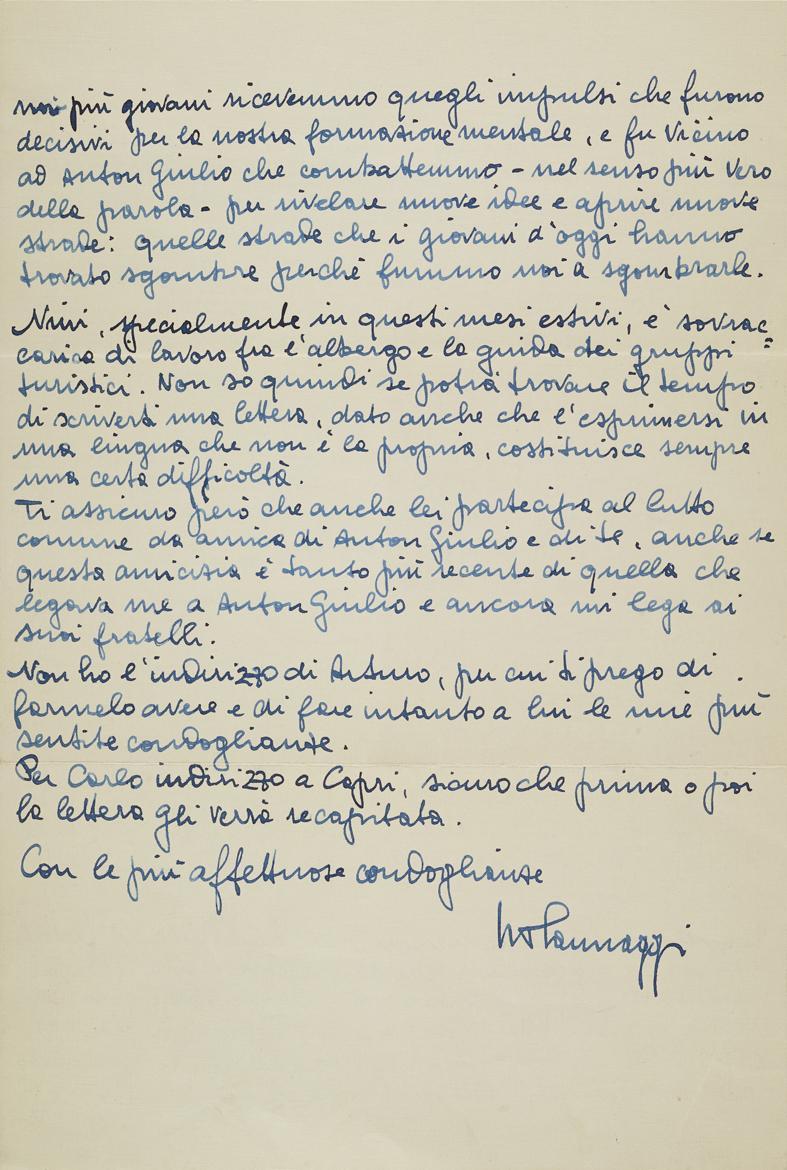 noi più giovani ricevemmo quegli impulsi che furono
decisivi per la nostra formazione mentale, e fu vicino
ad Anton Giulio che combattemmo - nel senso più vero
della parola - per rivelare nuove idee e aprire nuove
strade: quelle strade che i giovani d'oggi hanno
trovato sgombre perchè fummo noi a sgombrarle.
Nivi, specialmente in questi mesi estivi, è sovrac=
carica di lavoro fra l'albergo e la guida dei gruppi
turistici. Non so quindi se potrà trovare il tempo
di scriverti una lettera, dato anche che l'esprimersi in
una lingua che non è la propria, costituisce sempre
una certa difficoltà.
Ti assicuro però che anche lei partecipa al lutto
comune da amica di Anton Giulio e di te, anche se
questa amicizia è tanto più recente di quella che
legava me a Anton Giulio e ancora mi lega ai
suoi fratelli.
Non ho l'indirizzo di Arturo, per cui ti prego di
farmelo avere e di fare intanto a lui le mie più
sentite condoglianze.
Per Carlo indirizzo a Capri, sicuro che prima o poi
la lettera gli verrà recapitata.
Con le più affettuose condoglianze
Ivo Pannaggi